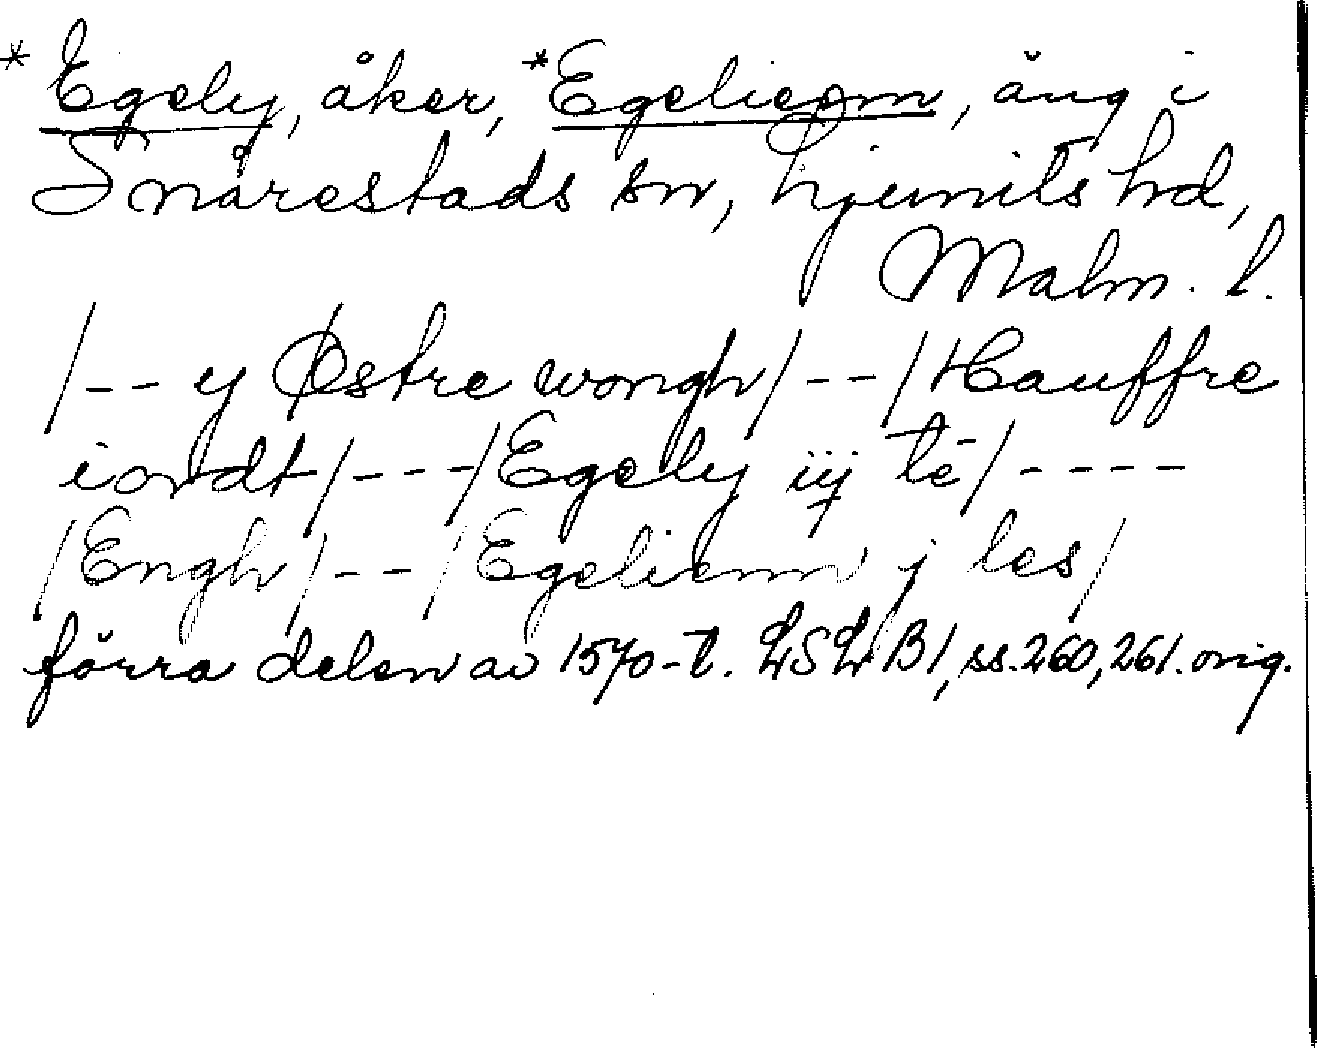 * Egely, åker, * Egelieem, äng i
Snårestads sn, Ljunits hd,
Malm. l.
/-- y Østre wongh/--/Hauffre
iordt/---/Egely iij te/----
/Engh/--/Egeliemn j les/
förra delen av 1570-t. LSLB1, ss. 260, 261. orig.